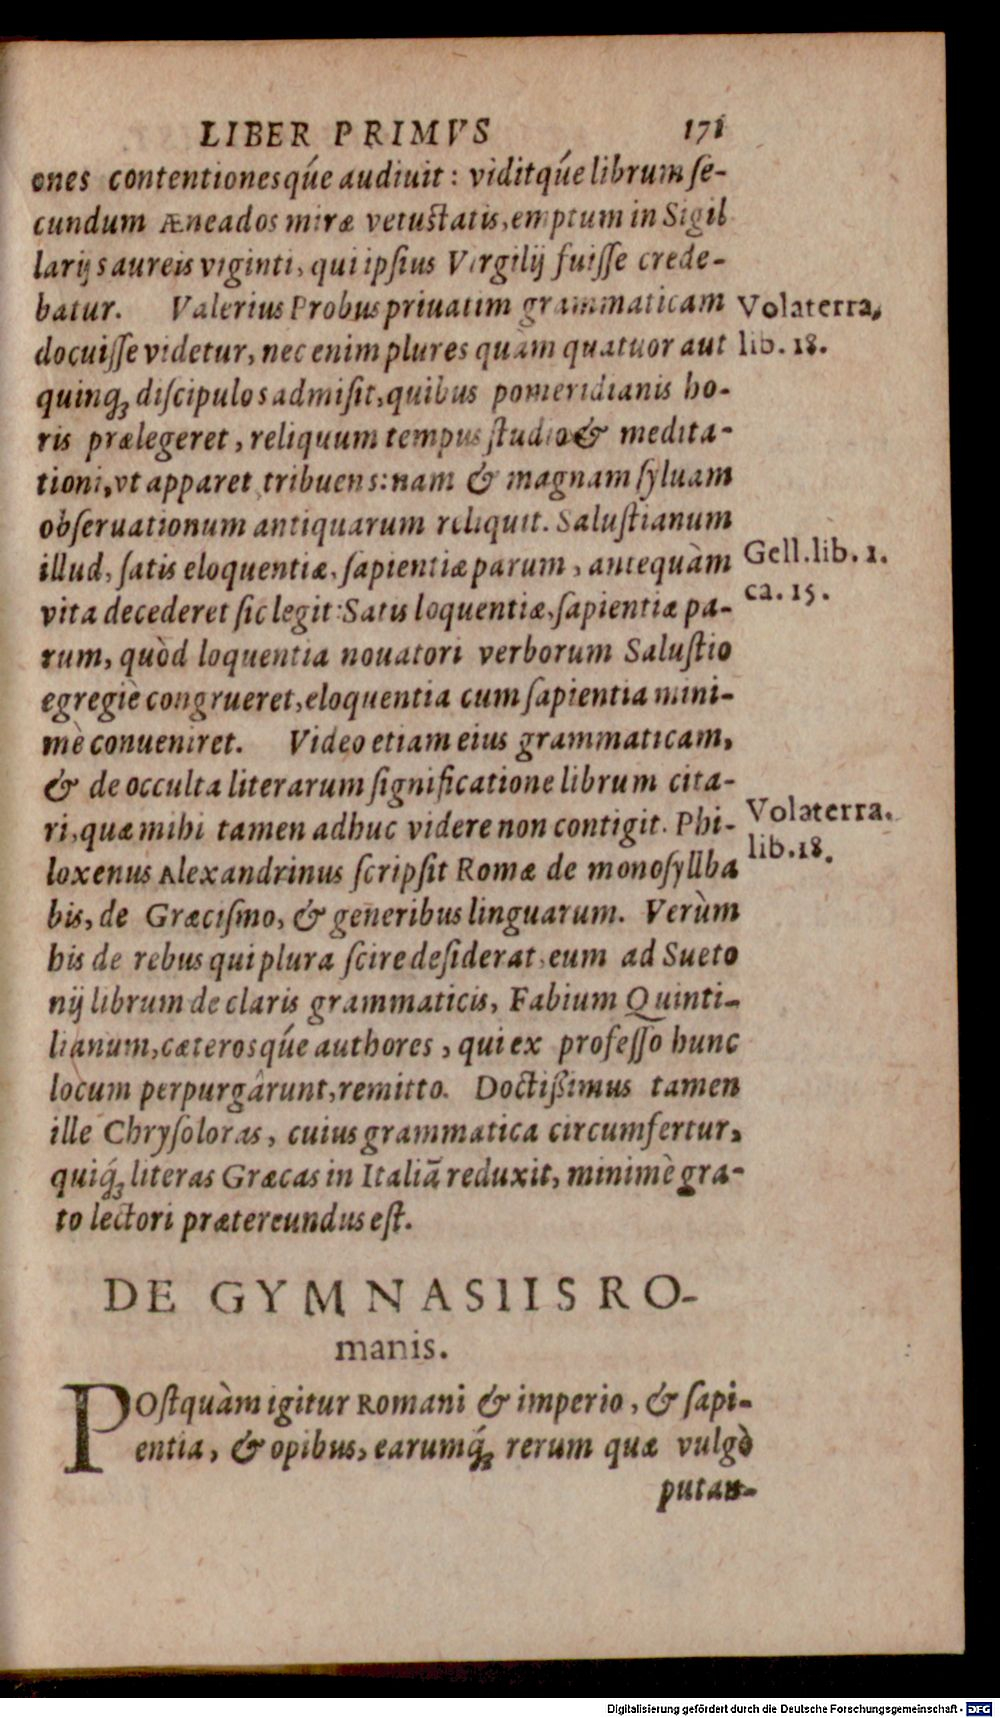 LIBER PRIMVS 171
ones contentionesq́ue audiuit: viditq́ue librum ſe-
cundum Æneados miræ vetuſtatis, emptum in Sigil
larijs aureis viginti, qui ipſius Virgilij fuiſſe crede-
batur. Valerius Probus priuatim grammaticam
Volaterra.
docuiſſe videtur, nec enim plures quàm quatuor aut
lib. 18.
quinq; diſcipulos admiſit, quibus pomeridianis ho-
ris prælegeret, reliquum tempus ſtudio & medita-
tioni, vt apparet tribuens: nam & magnam ſyluam
obſeruationum antiquarum reliquit. Saluſtianum
illud, ſatis eloquentiæ, ſapientiæ parum, antequàm
Gell. lib. 1.
ca. 15.
vita decederet ſic legit: Satis loquentiæ, ſapientiæ pa-
rum, quòd loquentia nouatori verborum Saluſtio
egregiè congrueret, eloquentia cum ſapientia mini-
mè conueniret. Video etiam eius grammaticam,
& de occulta literarum ſignificatione librum cita-
ri, quæ mihi tamen adhuc videre non contigit. Phi-
Volaterra.
lib. 18.
loxenus Alexandrinus ſcripſit Romæ de monoſyllba
bis, de Græciſmo, & generibus linguarum. Verùm
his de rebus qui plura ſcire deſiderat, eum ad Sueto
nij librum de claris grammaticis, Fabium Quinti-
lianum, cæterosq́ue authores, qui ex profeſſo hunc
locum perpurgârunt, remitto. Doctißimus tamen
ille Chryſoloras, cuius grammatica circumfertur,
quiq́; literas Græcas in Italiã reduxit, minimè gra-
to lectori prætereundus eſt.
DE GYMNASIIS RO-
manis.
POſtquàm igitur Romani & imperio, & ſapi-
entia, & opibus, earumq́; rerum quæ vulgò
putan-
Digitalisierung gefördert durch die Deutsche Forschungsgemeinschaft - DFG